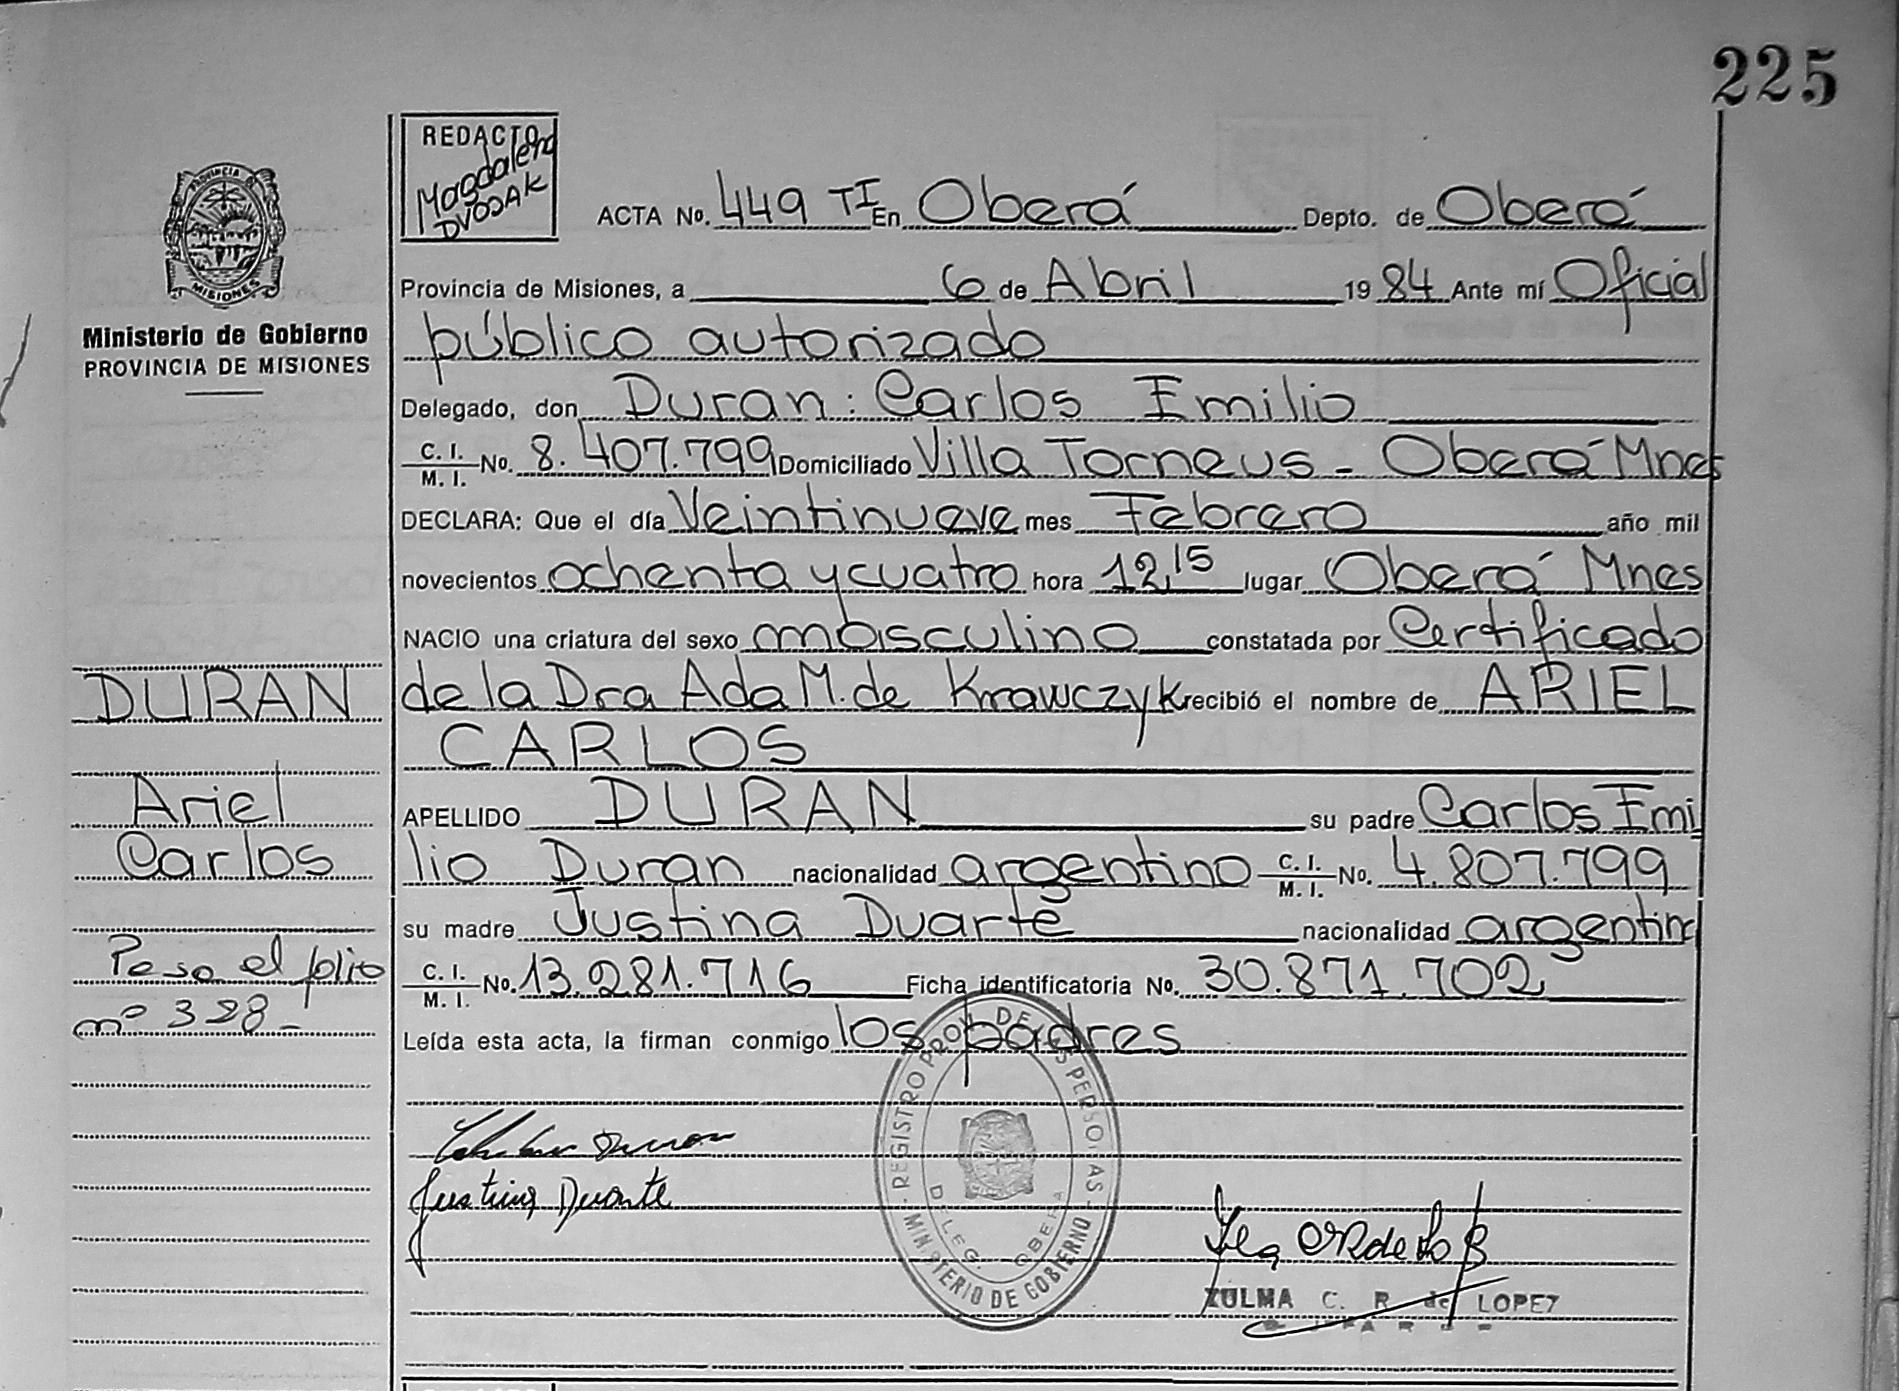 225
REDACTO
Magdalena
DVOSAK
PROVINCIA DE
MISIONES
Ministerio de Gobierno
PROVINCIA DE MISIONES
ACTA No. 449 TI En Oberá Depto. de Oberá
Provincia de Misiones, a 6 de Abril 1984 Ante mí Oficial
público autorizado
Delegado, don Duran: Carlos Emilio
C. I. / M. I. No. 8.407.799 Domiciliado Villa Torneus - Oberá Mnes
DECLARA: Que el día Veintinueve mes Febrero año mil
novecientos ochenta y cuatro hora 12,15 lugar Oberá Mnes
NACIO una criatura del sexo masculino constatada por Certificado
de la Dra Ada M. de Krawczyk recibió el nombre de ARIEL
CARLOS
APELLIDO DURAN su padre Carlos Emi
lio Duran nacionalidad argentino C. I. / M. I. No. 4.807.799
su madre Justina Duarte nacionalidad argentina
C. I. / M. I. No. 13.281.716 Ficha identificatoria No. 30.871.702
Leída esta acta, la firman conmigo los padres
DURAN
Ariel
Carlos
Pasa el folio
nº 328-
Justina Duarte
REGISTRO PROV. DE LAS PERSONAS
MINISTERIO DE GOBIERNO
DELEG. OBERA
ZULMA C. R. de LOPEZ